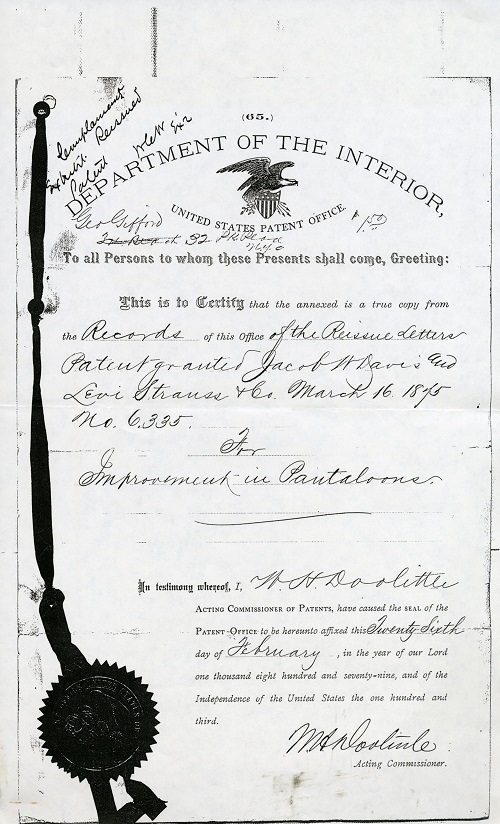 (65.)
Complainants
Exhibit. Reissued
Patent
DEPARTMENT OF THE INTERIOR,
UNITED STATES PATENT OFFICE.
Geo Gifford
$1.50
32
To all Persons to whom these Presents shall come, Greeting:
This is to Certify that the annexed is a true copy from
the Records of this Office of the Reissue Letters
Patent granted Jacob W Davis and
Levi Strauss & Co. March 16. 1875
No. 6.335.
For
Improvement in Pantaloons.
In testimony whereof, I, W. H. Doolittle
ACTING COMMISSIONER OF PATENTS, have caused the SEAL of the
PATENT-OFFICE to be hereunto affixed this Twenty Sixth
day of February , in the year of our Lord
one thousand eight hundred and seventy-nine, and of the
Independence of the United States the one hundred and
third.
W H Doolittle
Acting Commissioner.